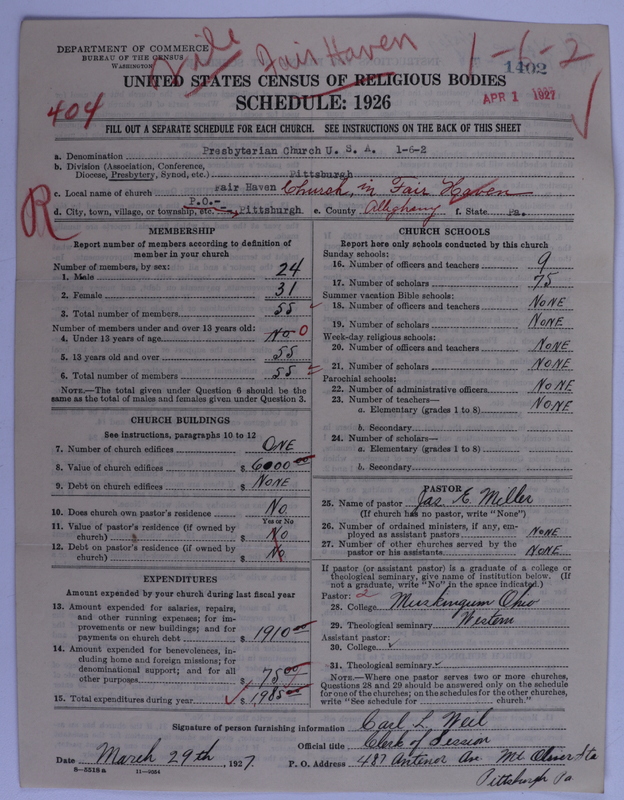 DEPARTMENT OF COMMERCE
BUREAU OF THE CENSUS
WASHINGTON
Fair Haven
1-6-2
1402
APR 1 1927
UNITED STATES CENSUS OF RELIGIOUS BODIES
SCHEDULE: 1926
404
FILL OUT A SEPARATE SCHEDULE FOR EACH CHURCH. SEE INSTRUCTIONS ON THE BACK OF THIS SHEET
a. Denomination Presbyterian Church U. S. A. 1-6-2
b. Division (Association, Conference, Diocese, Presbytery, Synod, etc.) Pittsburgh
c. Local name of church Fair Haven Church, in Fair Haven
d. City, town, village, or township, etc. P.O.- Pittsburgh e. County Allegheny f. State Pa.
R
MEMBERSHIP
Report number of members according to definition of
member in your church
Number of members, by sex:
1. Male 24
2. Female 31
3. Total number of members 55
Number of members under and over 13 years old:
4. Under 13 years of age No 0
5. 13 years old and over 55
6. Total number of members 55
NOTE.—The total given under Question 6 should be
same as the total of males and females given under Question 3.
CHURCH BUILDINGS
See instructions, paragraphs 10 to 12
7. Number of church edifices ONE
8. Value of church edifices $ 6000 00
9. Debt on church edifices $ NONE
10. Does church own pastor's residence No
Yes or No
11. Value of pastor's residence (if owned by
church) $ No
12. Debt on pastor's residence (if owned by
church) $ No
EXPENDITURES
Amount expended by your church during last fiscal year
13. Amount expended for salaries, repairs,
and other running expenses; for im-
provements or new buildings; and for
payments on church debt $ 1910 00
14. Amount expended for benevolences, in-
cluding home and foreign missions; for
denominational support; and for all
other purposes $ 75 00
15. Total expenditures during year $ 1985 00
CHURCH SCHOOLS
Report here only schools conducted by this church
Sunday schools:
16. Number of officers and teachers 9
17. Number of scholars 75
Summer vacation Bible schools:
18. Number of officers and teachers NONE
19. Number of scholars NONE
Week-day religious schools:
20. Number of officers and teachers NONE
21. Number of scholars NONE
Parochial schools:
22. Number of administrative officers NONE
23. Number of teachers—
a. Elementary (grades 1 to 8) NONE
b. Secondary
24. Number of scholars—
a. Elementary (grades 1 to 8)
b. Secondary
PASTOR
25. Name of pastor Jas. E. Miller
(If church has no pastor, write "None")
26. Number of ordained ministers, if any, em-
ployed as assistant pastors NONE
27. Number of other churches served by the
pastor or his assistants NONE
If pastor (or assistant pastor) is a graduate of a college or
theological seminary, give name of institution below. (If
not a graduate, write "No" in the space indicated.)
Pastor: 2
28. College Muskingum Ohio
29. Theological seminary Western
Assistant pastor:
30. College
31. Theological seminary
NOTE.—Where one pastor serves two or more churches,
Questions 28 and 29 should be answered only on the schedule
for one of the churches; on the schedules for the other churches,
write "See schedule for church."
Signature of person furnishing information Carl L. Weil
Official title Clerk of Session
Date March 29th, 1927 P. O. Address 487 Antenor Av Mt Oliver Sta
Pittsburgh Pa
8-5518 a 11-9024